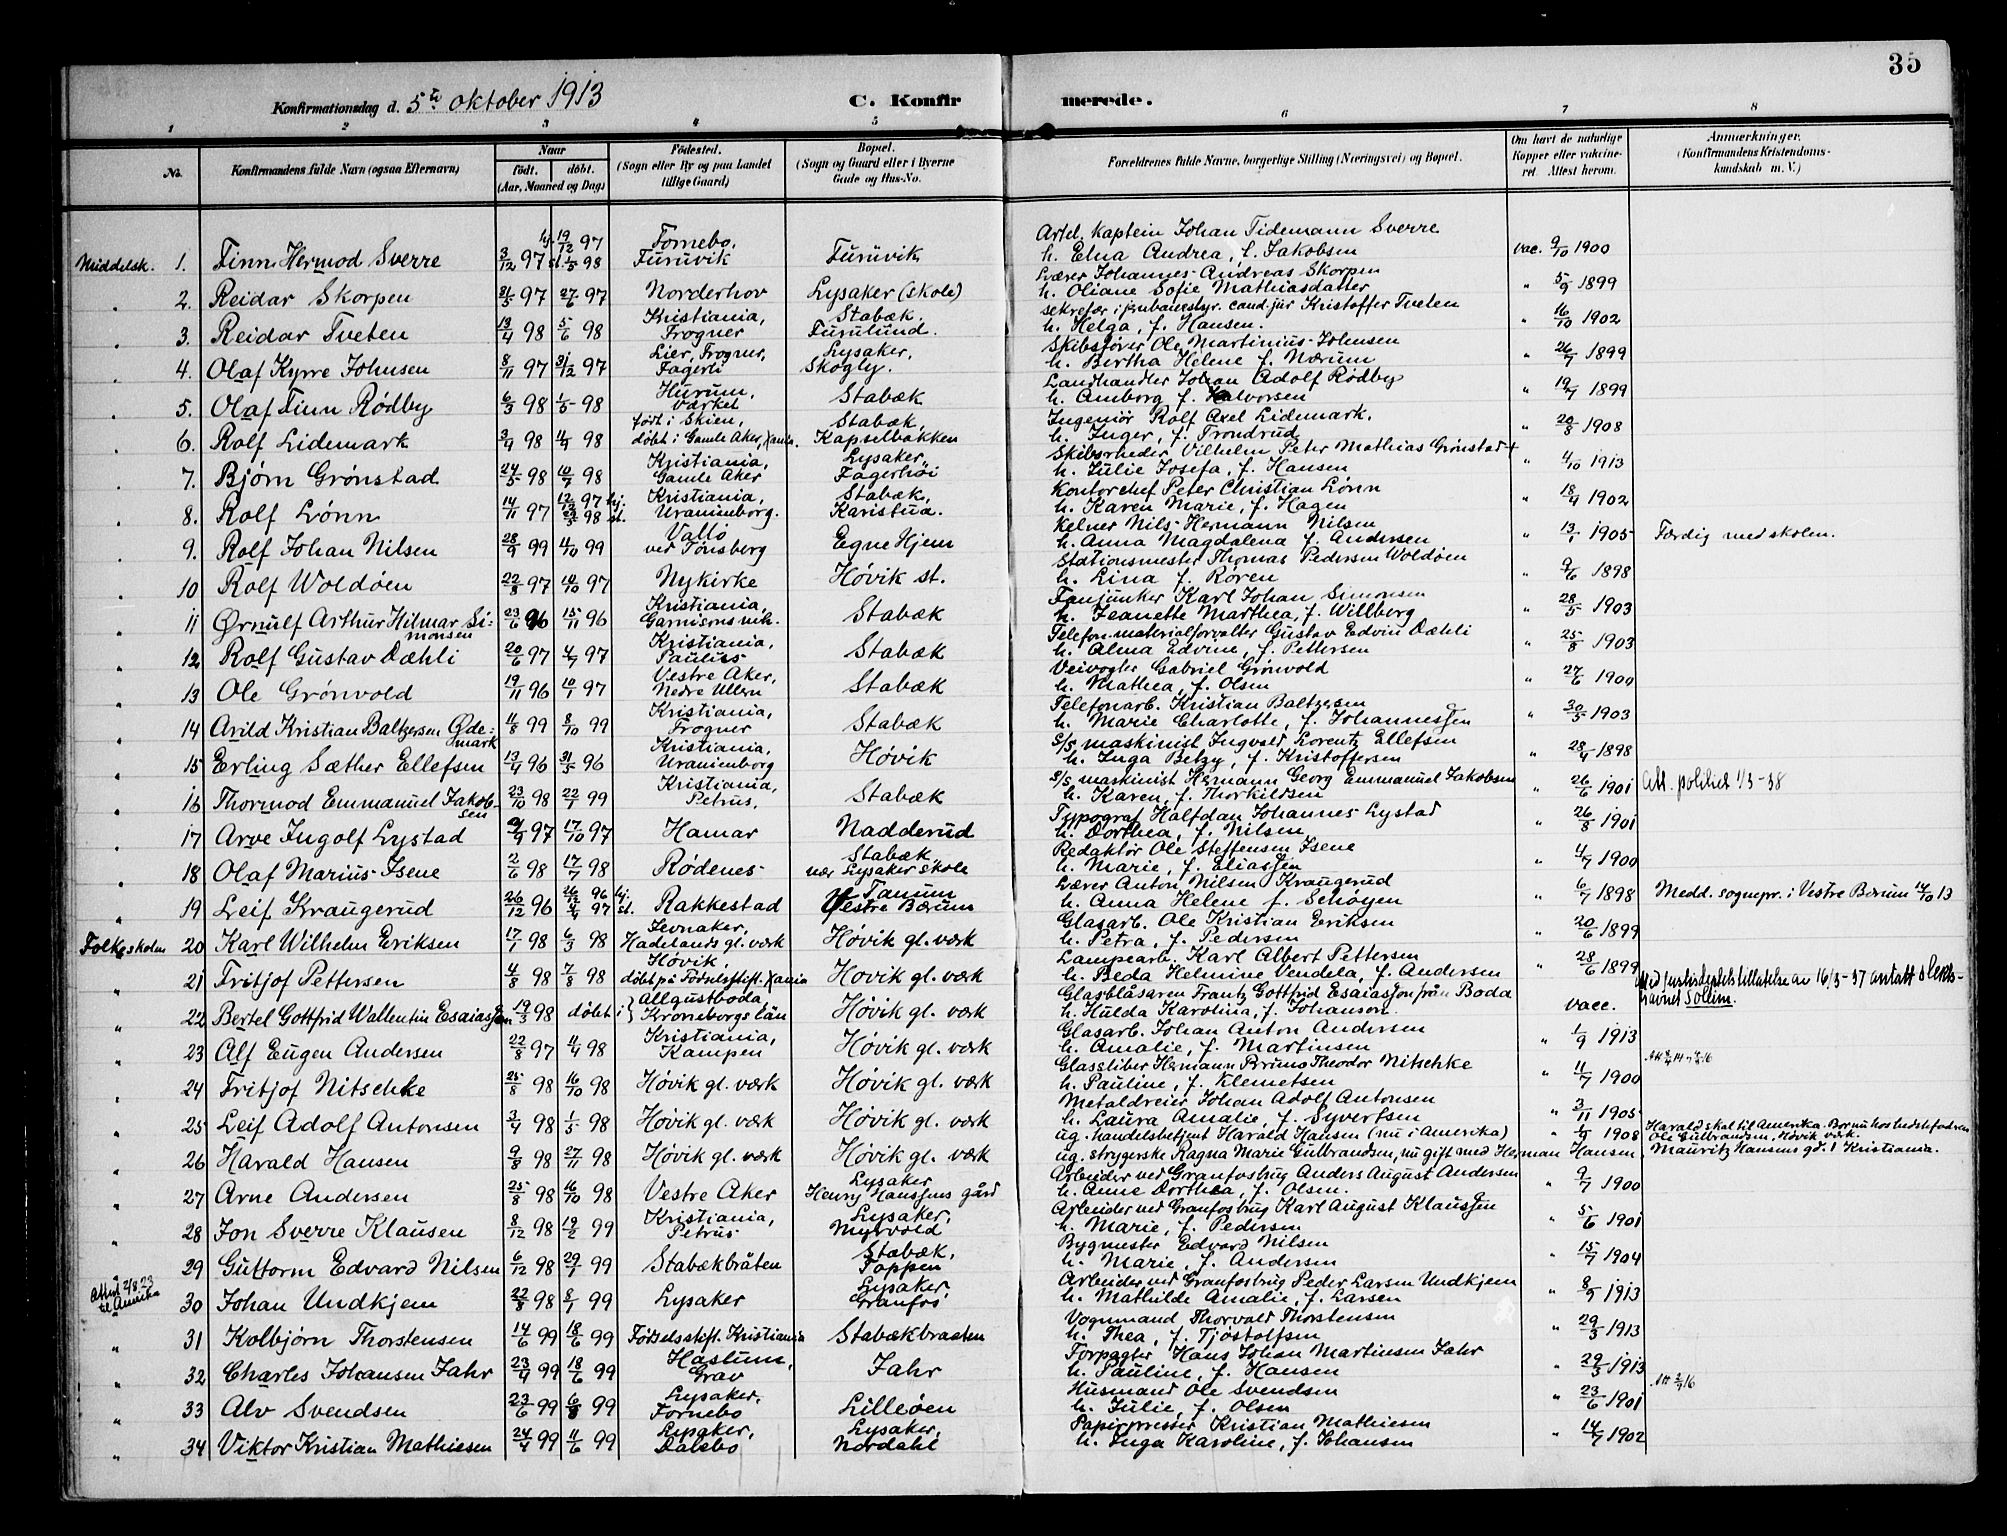 35
Konfirmationsdag d. 5te oktober 1913 C. Konfirmerede.
1 2 3 4 5 6 7 8
No. Konfirmandens fulde Navn (ogsaa Efternavn) Naar født. døbt. (Aar, Maaned og Dag) Fødested. (Sogn eller By og paa Landet tillige Gaard) Bopæl. (Sogn og Gaard eller i Byerne Gade og Hus-No. Forældrenes fulde Navne, borgerlige Stilling (Næringsvei) og Bopæl. Om havt de naturlige Kopper eller vaccineret. Attest herom. Anmærkninger. (Konfirmandens Kristendomskundskab m. V.)
Middelsk. 1. Finn Hermod Sverre 3/12 97 hj. 19/12 97 st. 1/5 98 Fornebo, Furuvik Furuvik Artel. kaptein Johan Tidemann Sverre h. Elna Andrea, f. Jakobsen vac. 9/10 1900
2. Reidar Skorpen 31/5 97 27/6 97 Norderhov Lysaker (skole) Lærer Johannes Andreas Skorpen h. Oliane Sofie Mathiasdatter " 5/9 1899
3. Reidar Tveten 13/4 98 5/6 98 Kristiania, Frogner Stabæk. Furulund. sekretær i jernbanestyr. cand. jur Kristoffer Tveten h. Helga, f. Hansen. " 16/10 1902
4. Olaf Kyrre Johnsen 8/11 97 31/12 97 Lier, Frogner, Fagerli Lysaker, Skogly. Skibsfører Ole Martinius Johnsen h. Bertha Helene f. Nærum " 26/7 1899
5. Olaf Finn Rødby 6/3 98 1/5 98 Hurum, værket Stabæk Landhandler Johan Adolf Rødby h. Amborg f. Halvorsen " 19/7 1899
6. Rolf Lidemark 3/4 98 98 født i Skien, døbt i Gamle Aker, Xania. Stabæk, Kapselbakken Ingeniør Rolf Axel Lidemark. h. Inger, f. Trondrud " 20/8 1908
7. Bjørn Grønstad 24/5 98 10/7 98 Kristiania, Gamle Aker Lysaker, Fagerhøi Skibsrheder Vilhelm Peter Mathias Grønstad + h. Julie Josefa, f. Hansen " 4/10 1913
8. Rolf Lønn 14/11 97 12/12 97 hj. 98 st. Kristiania, Uranienborg. Stabæk, Karistua. Kontorchef Peter Christian Lønn h. Karen Marie, f. Hagen " 18/9 1902
9. Rolf Johan Nilsen 28/9 99 4/10 99 Vallø ved Tønsberg Egne Hjem Kelner Nils Hermann Nilsen h. Anna Magdalena f. Andersen " 13/1 1905 Færdig med skolen.
10 Rolf Woldøen 22/8 97 10/10 97 Nykirke Høvik st. Stationsmester Thomas Pedersen Woldøen h. Lina f. Røren " 9/6 1898
11 Ørnulf Arthur Hilmar Simonsen 23/6 96 15/11 96 Kristiania, Garnisons mh. Stabæk Fanjunker Karl Johan Simonsen h. Jeanette Marthea, f. Willberg " 28/5 1903
12 Rolf Gustav Dæhli 20/6 97 4/7 97 Kristiania, Paulus Stabæk Telefon. materialforvalter Gustav Edvin Dæhli h. Alma Edvine, f. Pettersen " 25/8 1903
13 Ole Grønvold 19/11 96 10/1 97 Vestre Aker, Nedre Ullern Stabæk Veivogter Gabriel Grønvold h. Mathea, f. Olsen " 27/6 1900
14 Arild Kristian Baltzersen Ødemark 4/8 99 8/10 99 Kristiania, Frogner Stabæk Telefonarb. Kristian Baltzersen h. Marie Charlotte, f. Johannessen " 30/5 1903
15 Erling Sæther Ellefsen 13/4 96 31/5 96 Kristiania, Uranienborg Høvik S/S maskinist Ingvald Lorentz Ellefsen h. Inga Betzy, f. Kristoffersen " 28/4 1898
16 Thormod Emmanuel Jakobsen 23/10 98 22/1 99 Kristiania, Petrus, Stabæk S/S maskinist Hermann Georg Emmanuel Jakobsen h. Karen, f. Thorkildsen " 26/6 1901 Att. politiet 1/3-38
17 Arve Ingolf Lystad 97 17/10 97 Hamar Nadderud Typograf Halfdan Johannes Lystad h. Dorthea, f. Nilsen " 26/8 1901
18 Olaf Marius Isene 2/6 98 17/7 98 Rødenes Stabæk, nær Lysaker skole Redaktør Ole Steffensen Isene h. Marie, f. Eliassen " 4/7 1900
19 Leif Kraugerud 26/12 96 26/12 96 hj. 97 st. Rakkestad Tanum Vestre Bærum Lærer Anton Nilsen Kraugerud h. Anna Helene f. Schøyen " 6/7 1898 Medd. sognepr. i Vestre Bærum 14/10 13
Folkeskolen 20 Karl Wilhelm Eriksen 17/1 98 6/3 98 Jevnaker, Hadelands gl. værk Høvik gl. værk Glasarb. Ole Kristian Eriksen h. Petra, f. Pedersen " 20/6 1899
21 Fritjof Pettersen 4/8 98 7/8 98 Høvik, døbt på Fødselsstift. Xania Høvik gl. værk Lampearb. Karl Albert Pettersen h. Beda Helmine Vendela, f. Andersen " 28/6 1899
22 Bertel Gottfrid Wallentin Esaiassen 19/3 98 døbt i Allgustboda, Kronoborgs län Høvik gl. værk Glasblåsaren Frantz Gottfrid Esaiasson från Boda h. Hulda Karolina, f. Johanson vacc. Med justisdeptets tillatelse av 16/3-37 antatt slektsnavnet Sollim.
23 Alf Eugen Andersen 22/8 97 11/4 98 Kristiania, Kampen Høvik gl. værk Glasarb. Johan Anton Andersen h. Amalie, f. Martinsen " 1/9 1913
24 Fritjof Nitschke 25/8 98 16/10 98 Høvik gl. værk Høvik gl. værk Glassliber Hermann Bruno Theodor Nitschke h. Pauline, f. Klemetsen " 4/7 1900
25 Leif Adolf Antonsen 3/4 98 1/5 98 Høvik gl. værk Høvik gl. værk Metaldreier Johan Adolf Antonsen h. Laura Amalie, f. Syvertsen " 3/11 1905
26 Harald Hansen 9/8 98 27/11 98 Høvik gl. værk Høvik gl. værk ug. handelsbetjent Harald Hansen (nu i Amerika) ug. strygerske Ragna Marie Gulbrandsen, nu gift med Herman Hansen, " 1908 Harald skal til Amerika. Bor nu hos bedstefaderen Ole Gulbrandsen, Høvik værk. Mauritz Hansens gd. 1 Kristiania.
27 Arne Andersen 25/8 98 16/10 98 Vestre Aker Lysaker Henry Hansens gård Arbeider ved Granfosbrug Anders August Andersen h. Anne Dorthea, f. Olsen. " 9/7 1900
28 Jon Sverre Klausen 8/12 98 19/2 99 Kristiania, Petrus Lysaker, Myrvold Arbeider ved Granfosbrug Karl August Klaussen h. Marie, f. Pedersen " 5/6 1901
29 Guttorm Edvard Nilsen 6/12 98 29/1 99 Stabækbråten Stabæk, Toppen Bygmester Edvard Nilsen h. Marie, f. Andersen " 15/7 1904
Attest 2/8 23 til Amerika 30 Johan Undkjem 22/8 98 8/1 99 Lysaker Lysaker, Granfos Arbeider ved Granfosbrug Peder Larsen Undkjem h. Mathilde Amalie, f. Larsen " 8/9 1913
31 Kolbjørn Thorstensen 14/6 99 18/6 99 Fødselsstift. Kristiania Stabækbraaten Vognmand Thorvald Thorstensen h. Thea, f. Tjøstolfsen " 29/3 1913
32 Charles Johansen Jahr 23/4 99 18/6 99 Haslum, Grav Jahr Forpagter Hans Johan Martinsen Jahr h. Pauline, f. Hansen " 29/3 1913
33 Alv Svendsen 23/6 99 6/8 99 Lysaker, Fornebo Lilleøen Husmand Ole Svendsen h. Julie, f. Olsen " 23/6 1901
34 Viktor Kristian Mathiesen 24/4 99 11/6 99 Lysaker, Dalebo Lysaker, Nordahl Papirpresser Kristian Mathiesen h. Inga Karoline, f. Johansen " 14/7 1902